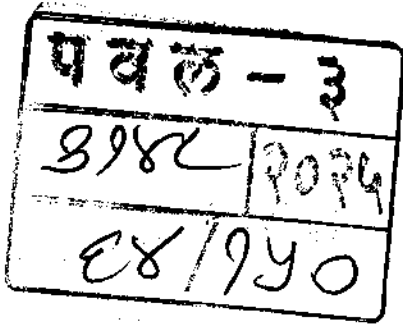 पवल - ३
३१४८ २०२५
६४/१५०